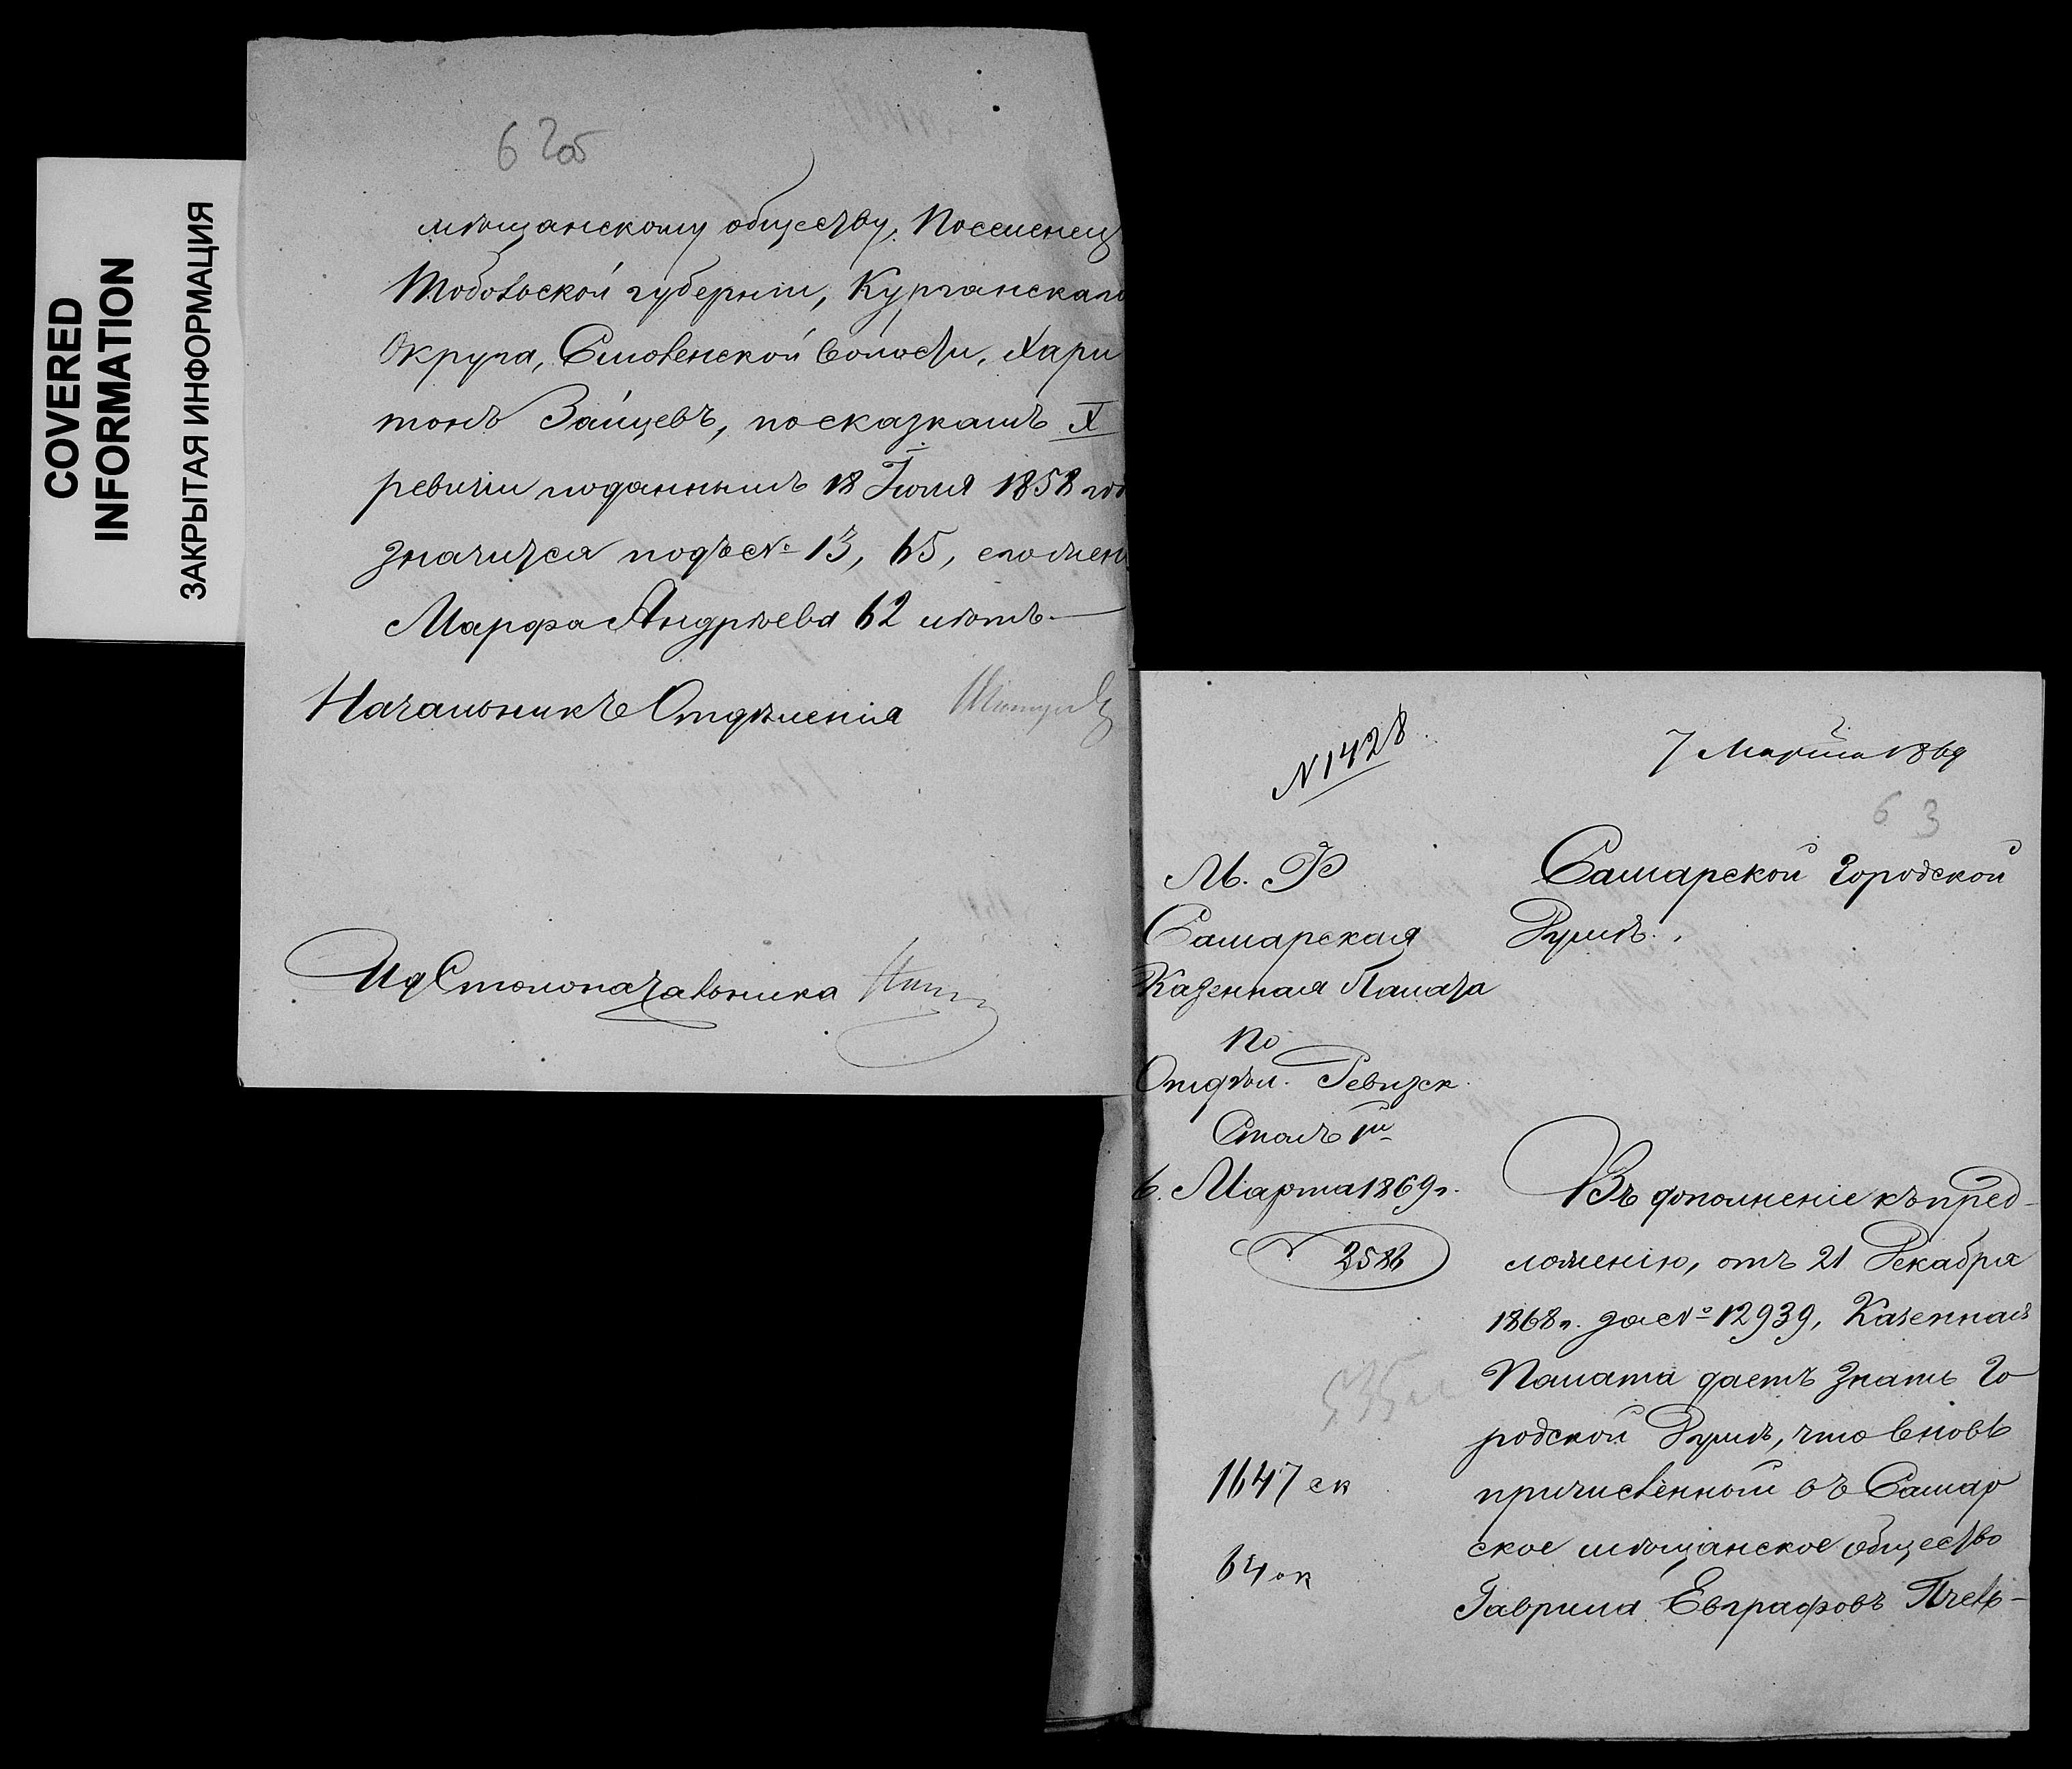 COVERED
INFORMATION
ЗАКРЫТАЯ ИНФОРМАЦИЯ
62об
мѣщанскому обществу, Поселенец
Тобольской губерніи, Курганскаго
Округа, Смоленской волости, Хари
тонъ Зайцевъ, по сказкамъ X
ревизіи поданнымъ 18 Іюля 1858 год
значится подъ № 13, 65, его жен
Марфа Андрѣева 62 лѣтъ.
Начальникъ Отдѣленія
Ид Столоначальника
N 1428
7 Марта 1869
63
М. Ф
Самарская
Казенная Палата
По
Отдѣл. Ревизск.
Столъ 1й
6. Марта 1869 г.
2586
1647 ск
64 ок
Самарской Городской
Думѣ.
Въ дополненіе къ пред-
ложенію, отъ 21 Декабря
1868 г. за № 12939, Казенная
Палата даетъ знать Го
родской Думѣ, что вновь
причисленный въ Самар
ское мѣщанское общество
Гаврила Евграфовъ Пчель-